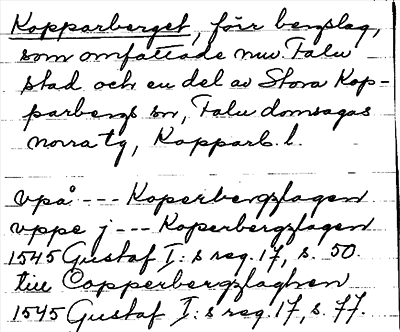 Kopparberget, förr bergslag,
som omfattade nuv. Falu
stad och en del av Stora Kop-
parbergs sn, Falu domsagas
norra tg, Kopparb. l.
vpå --- Koperbergzlagen
vppe j --- Koperbergzlagen
1545 Gustaf I:s reg. 17, s. 50.
till Copperbergzlaghen
1545 Gustaf I:s reg. 17, s. 77.